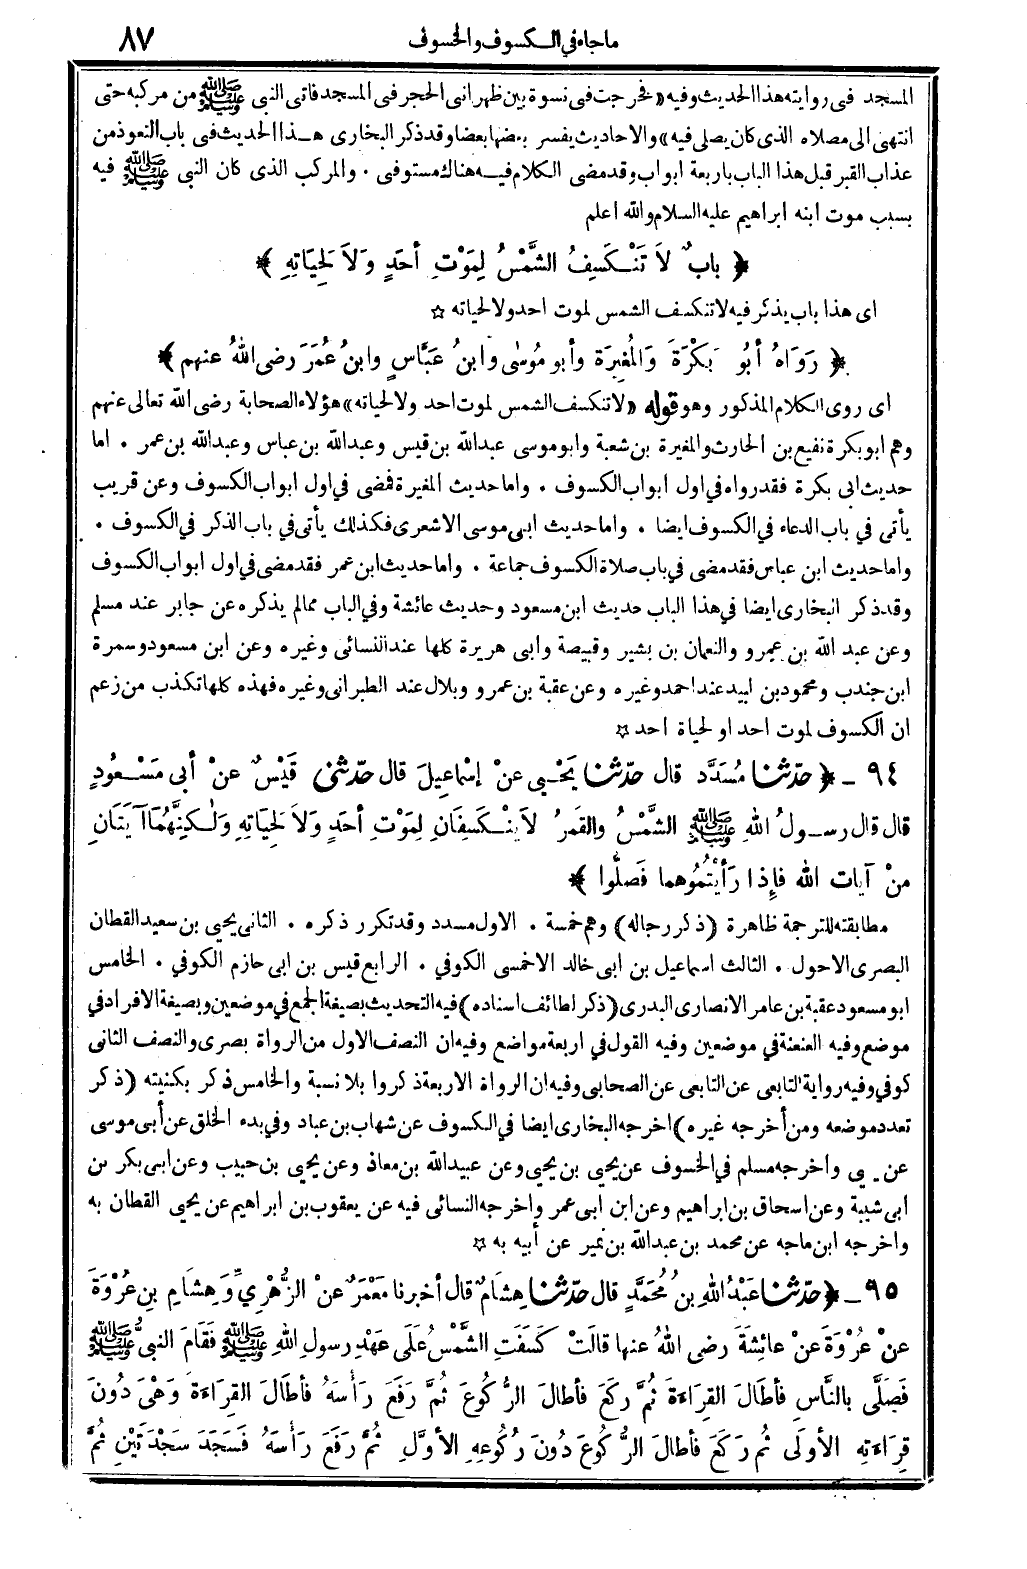 ماجاء في الكسوف والخسوف ٨٧
المسجد في روايته هذا الحديث وفيه «فخرجت في نسوة بين ظهراني الحجر في المسجد فاتى النبي ﷺ من مركبه حتى
انتهى الى مصلاه الذى كان يصلى فيه» والاحاديث يفسر بعضها بعضا وقد ذكر البخارى هذا الحديث في باب التعوذ من
عذاب القبر قبل هذا الباب باربعة ابواب وقد مضى الكلام فيه هناك مستوفى . والمركب الذى كان النبي ﷺ فيه
بسبب موت ابنه ابراهيم عليه السلام والله اعلم
﴿ بابٌ لاَ تَنْكَسِفُ الشَّمْسُ لِمَوْتِ أحَدٍ وَلاَ لِحَيَاتِهِ ﴾
اى هذا باب يذكر فيه لا تنكسف الشمس لموت احد ولا لحياته ☆
﴿ رَوَاهُ أبُو بَكْرَةَ وَالمُغِيرَة وأبو مُوسٰى وابنُ عَبَّاسٍ وابنُ عُمَرَ رضى اللهُ عنهم ﴾
اى روى الكلام المذكور وهو قوله «لا تنكسف الشمس لموت احد ولا لحياته» هؤلاء الصحابة رضى الله تعالى عنهم
وهم ابو بكرة نفيع بن الحارث والمغيرة بن شعبة وابو موسى عبدالله بن قيس وعبدالله بن عباس وعبدالله بن عمر . اما
حديث ابى بكرة فقد رواه في اول ابواب الكسوف . واما حديث المغيرة فمضى في اول ابواب الكسوف وعن قريب
يأتى في باب الدعاء في الكسوف ايضا . واما حديث ابى موسى الاشعرى فكذلك يأتى في باب الذكر في الكسوف .
واما حديث ابن عباس فقد مضى في باب صلاة الكسوف جماعة . واما حديث ابن عمر فقد مضى في اول ابواب الكسوف
وقد ذكر البخارى ايضا في هذا الباب حديث ابن مسعود وحديث عائشة وفي الباب ممالم يذكره عن جابر عند مسلم
وعن عبد الله بن عمرو والنعمان بن بشير وقبيصة وابى هريرة كلها عند النسائى وغيره وعن ابن مسعود وسمرة
ابن جندب ومحمود بن لبيد عند احمد وغيره وعن عقبة بن عمرو وبلال عند الطبرانى وغيره فهذه كلها تكذب من زعم
ان الكسوف لموت احد او لحياة احد ☆
٩٤ - ﴿ حدّثنا مُسَدَّد قال حدّثنا يَحْيى عنْ إسْماعِيلَ قال حدّثنى قَيْسٌ عنْ أبى مَسْعُودٍ
قال قال رسولُ اللهِ ﷺ الشَّمْسُ والقَمرُ لاَ يَنْكَسِفَانِ لِمَوْتِ أحَدٍ وَلاَ لِحَيَاتِهِ وَلٰكِنَّهُمَا آيَتَانِ
منْ آيات الله فإِذا رَأيْتُمُوهما فَصَلُّوا ﴾
مطابقته للترجمة ظاهرة (ذكر رجاله) وهم خمسة . الاول مسدد وقد تكرر ذكره . الثانى يحيى بن سعيد القطان
البصرى الاحول . الثالث اسماعيل بن ابى خالد الاحمسى الكوفي . الرابع قيس بن ابى حازم الكوفي . الخامس
ابو مسعود عقبة بن عامر الانصارى البدرى (ذكر لطائف اسناده) فيه التحديث بصيغة الجمع في موضعين وبصيغة الافراد في
موضع وفيه العنعنة في موضعين وفيه القول في اربعة مواضع وفيه ان النصف الاول من الرواة بصرى والنصف الثانى
كوفي وفيه رواية التابعى عن التابعى عن الصحابى وفيه ان الرواة الاربعة ذكروا بلا نسبة والخامس ذكر بكنيته (ذكر
تعدد موضعه ومن أخرجه غيره) اخرجه البخارى ايضا في الكسوف عن شهاب بن عباد وفي بدء الخلق عن أبى موسى
عن يحيى واخرجه مسلم في الخسوف عن يحيى بن يحيى وعن عبيدالله بن معاذ وعن يحيى بن حبيب وعن ابى بكر بن
ابى شيبة وعن اسحاق بن ابراهيم وعن ابن ابى عمر واخرجه النسائى فيه عن يعقوب بن ابراهيم عن يحيى القطان به
واخرجه ابن ماجه عن محمد بن عبدالله بن نمير عن أبيه به ☆
٩٥ - ﴿ حدّثنا عَبْدُ اللهِ بنُ مُحَمَّدٍ قال حدّثنا هِشَامٌ قال أخبرنا مَعْمَرٌ عنْ الزُّهْرِيِّ وَهِشَامِ بنِ عُرْوَةَ
عنْ عُرْوَةَ عنْ عائِشَةَ رضى اللهُ عنها قالَتْ كَسَفَتِ الشَّمْسُ عَلَى عَهْدِ رسولِ اللهِ ﷺ فَقَامَ النبيُّ ﷺ
فَصَلَّى بالنَّاسِ فأطَالَ القِرَاءَةَ ثُمَّ ركَعَ فأطالَ الرُّكُوعَ ثُمَّ رَفَعَ رَأسَهُ فأطَالَ القِرَاءَةَ وَهْىَ دُونَ
قِرَاءَتِهِ الأولَى ثُم رَكَعَ فأطالَ الرُّكُوعَ دُونَ رُكُوعِهِ الأوَّلِ ثُمَّ رَفَعَ رَأسَهُ فَسَجَدَ سَجْدَتَيْنِ ثُمَّ